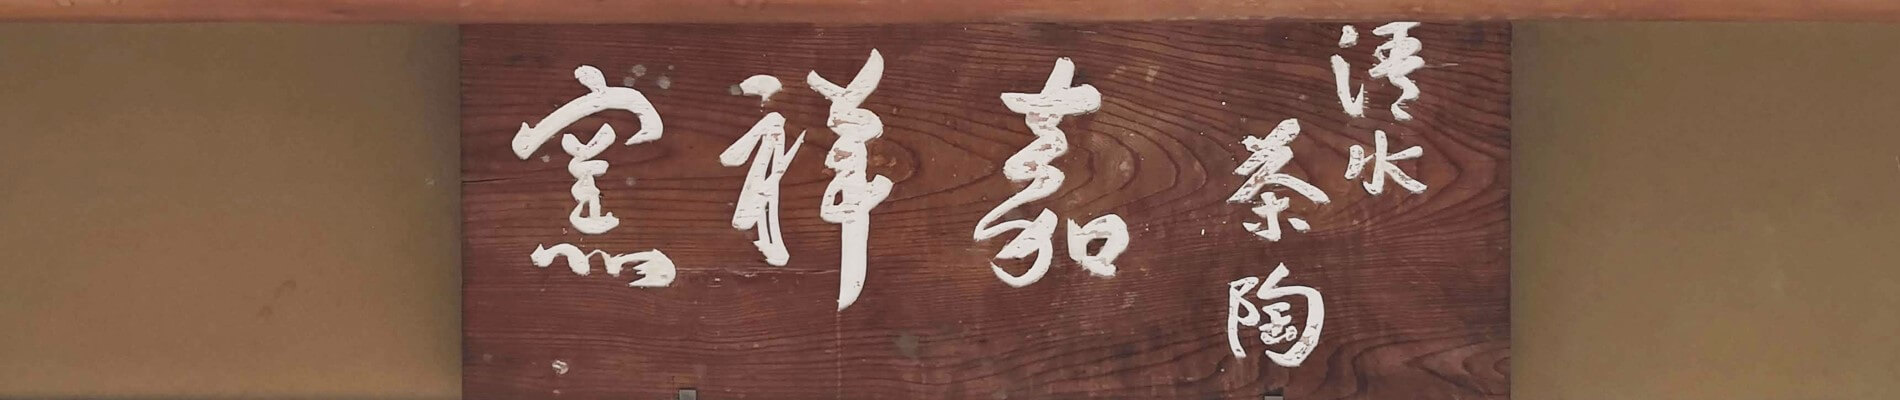 清水
茶陶
嘉祥窯